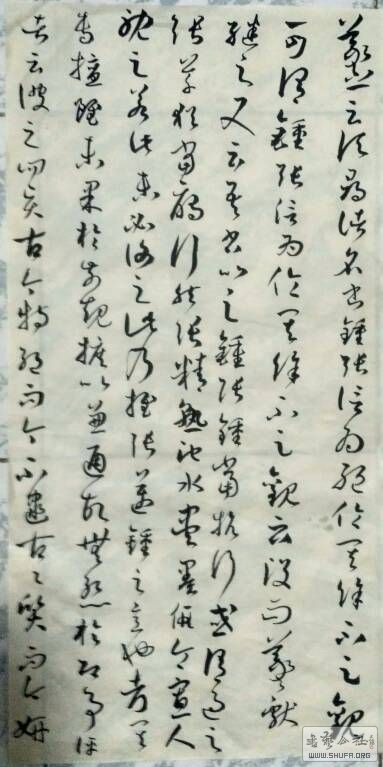 羲之云頃尋諸名書鍾張信為絕倫其餘不足觀
可謂鍾張信為倫其餘不足觀云沒而羲獻
繼之又云吾書比之鍾張鍾當抗行或謂過之
張草猶當雁行然張精熟池水盡墨假令寡人
耽之若此未必謝之此乃推張邁鍾之意也考其
專擅雖未果於前規摭以兼通故無慚於即事評
者云彼之四賢古今特絕而今不逮古々質而今妍
WWW.SHUFA.ORG